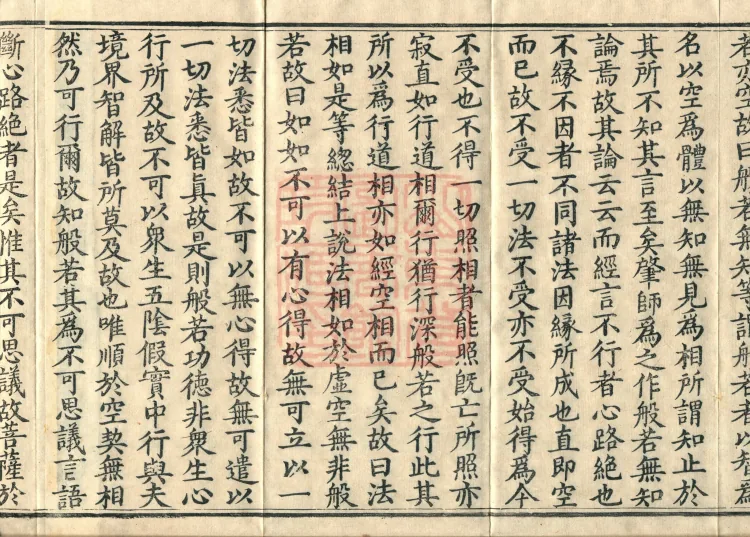 若亦空故曰般若無知等謂般若者以智爲
名以空爲體以無知無見爲相所謂知止於
其所不知其言至矣肇師爲之作般若無知
論焉故其論云云而經言不行者心路絶也
不緣不因者不同諸法因緣所成也直即空
而已故不受一切法不受亦不受始得爲今
不受也不得一切照相者能照旣亡所照亦
寂直如行道相爾行猶行深般若之行此其
所以爲行道相亦如經空相而已矣故曰法
相如是等緫結上說法相如於虛空無非般
若故曰如如不可以有心得故無可立以一
切法悉皆如故不可以無心得故無可遣以
一切法悉皆眞故是則般若功德非衆生心
行所及故不可以衆生五陰假實中行與夫
境界智解皆所莫及故也唯順於空契無相
然乃可行爾故知般若其爲不可思議言語
斷心路絶者是矣惟其不可思議故菩薩於